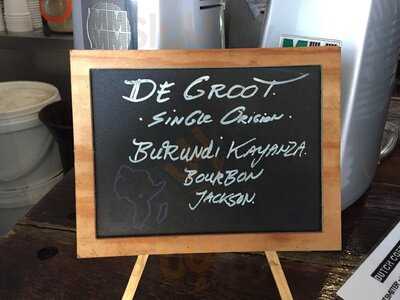 DE GROOT.
· SINGLE ORIGION ·
BURUNDI KAYANZA.
BOURBON
JACKSON.
DUTCH